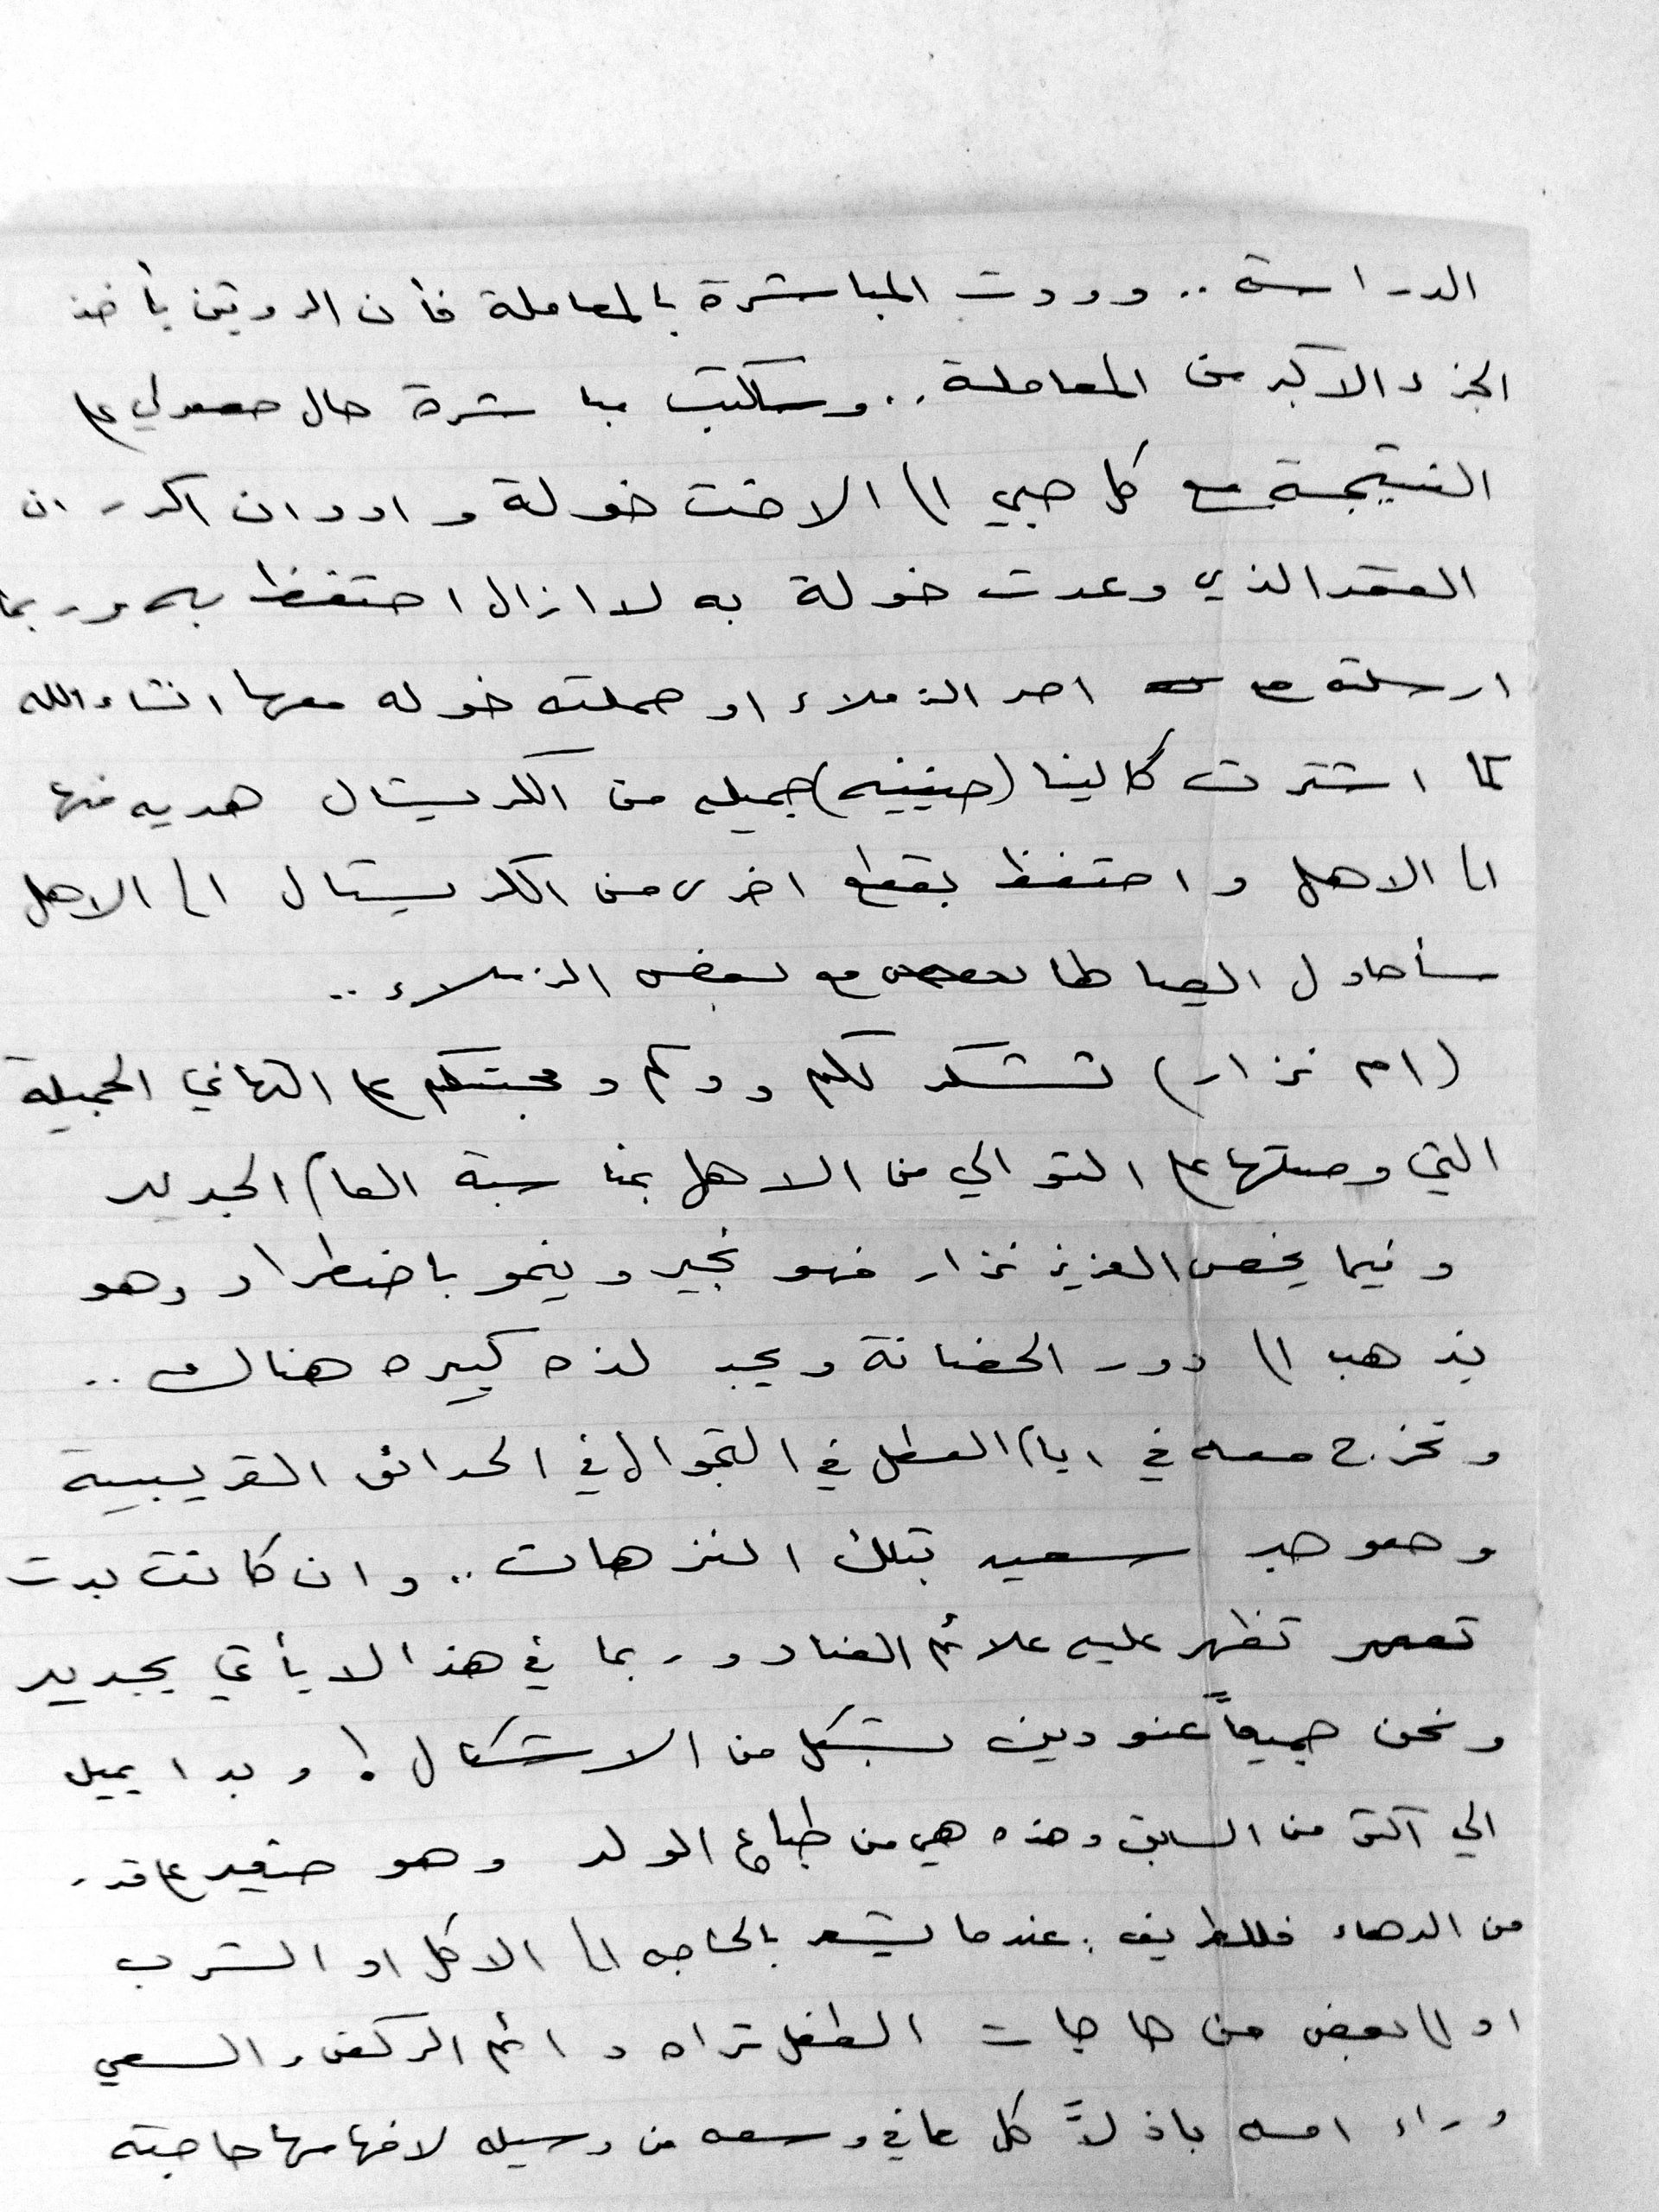 الدراسة .. وودت المباشرة بالمعاملة فأن الروتين يأخذ
الجزء الاكبر من المعاملة .. وسنكتب مباشرة حال حصولي على
النتيجة مع كل حبي الى الاخت خولة واود ان اكرر ان
العقد الذي وعدت خولة به لا ازال احتفظ به وربما
ارسلته مع احد الزملاء او حملته خوله معها انشاءالله
كما اشترت كالينا (صينيه) جميله من الكريستال هديه منها
الى الاهل واحتفظ بقطع اخرى من الكريستال الى الاهل
سأحاول ايصالها مع بعض الزملاء ..
(ام نزار) تشكر لكم ودكم ومحبتكم على التهاني الجميلة
التي وصلتها على التوالي من الاهل بمناسبة العام الجديد
وفيما يخص العزيز نزار فهو بخير وينمو باضطراد وهو
يذهب الى دور الحضانة ويجد لذه كبيره هناك ..
ونخرج معه في ايام العطل في التجوال في الحدائق القريبية
وهو جد سعيد بتلك النزهات .. وان كانت بدت
تظهر عليه علائم العناد وربما في هذا لا يأتي بجديد
ونحن جميعاً عنودين بشكل من الاشكال ! وبدا يميل
الي اكثر من السابق وهذه هي من طباع الولد وهو صغير على قدر
من الدهاء فللطريف : عندما يشعر بالحاجه الى الاكل او الشرب
او الى بعض من حاجات الطفل تراه دائم الركض والسعي
وراء امه باذلاً كل ما في وسعه من وسيله لافهامها حاجته